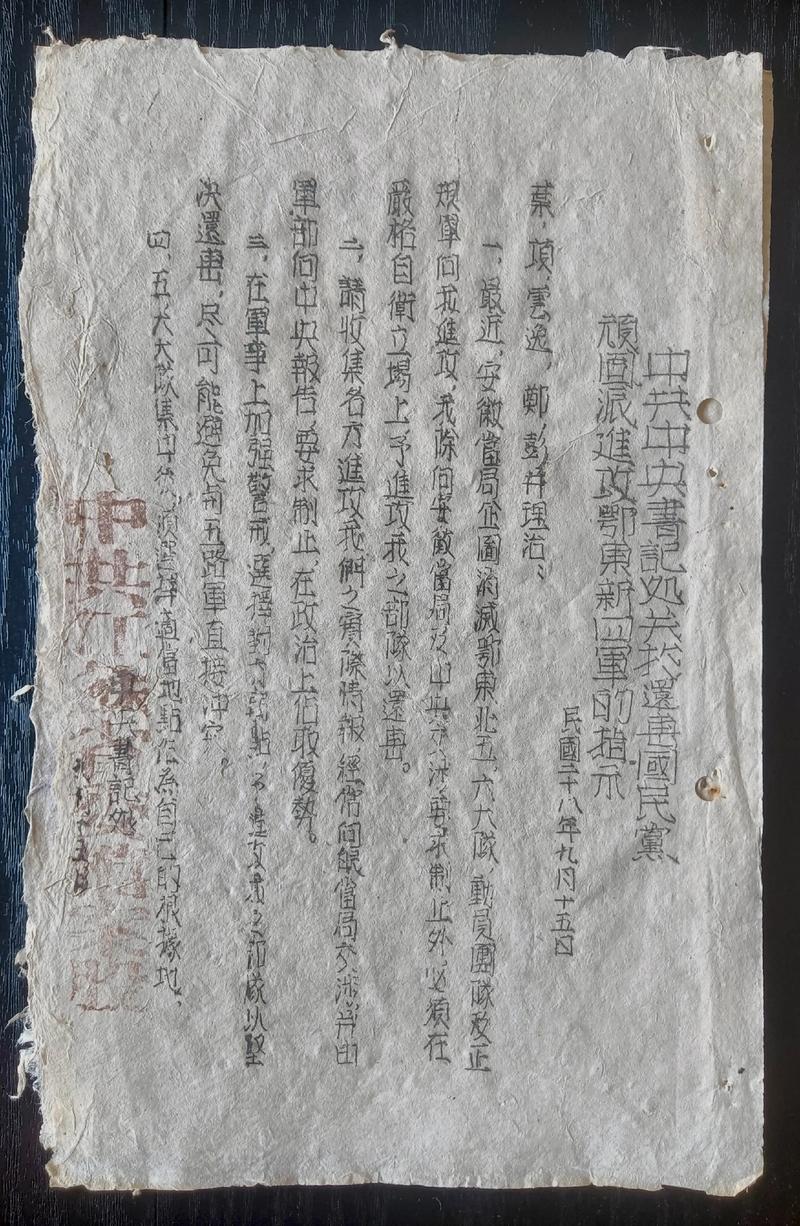 中共中央書記処关於還击國民黨
頑固派進攻鄂東新四軍的指示
民國二十八年九月十五日
葉，項，雲逸，鄭，彭并理治：
一、最近，安徽當局企圖消滅鄂東北五，六大隊，動員團隊及正
規軍向我進攻，我除向安徽當局及中央交涉，要求制止外，必須在
嚴格自衛立場上予進攻我之部隊以還击。
二、請收集各方進攻我們之實際情報，經常向皖當局交涉，并由
軍部向中央報告，要求制止，在政治上佔取優勢。
三、在軍事上加强警戒，選擇對方弱點，予進攻我之部隊以堅
决還击，尽可能避免和五路軍直接冲突。
四、五，六大隊集中後，須選擇適當地點作為自己的根據地。
中央書記処
五日
中共